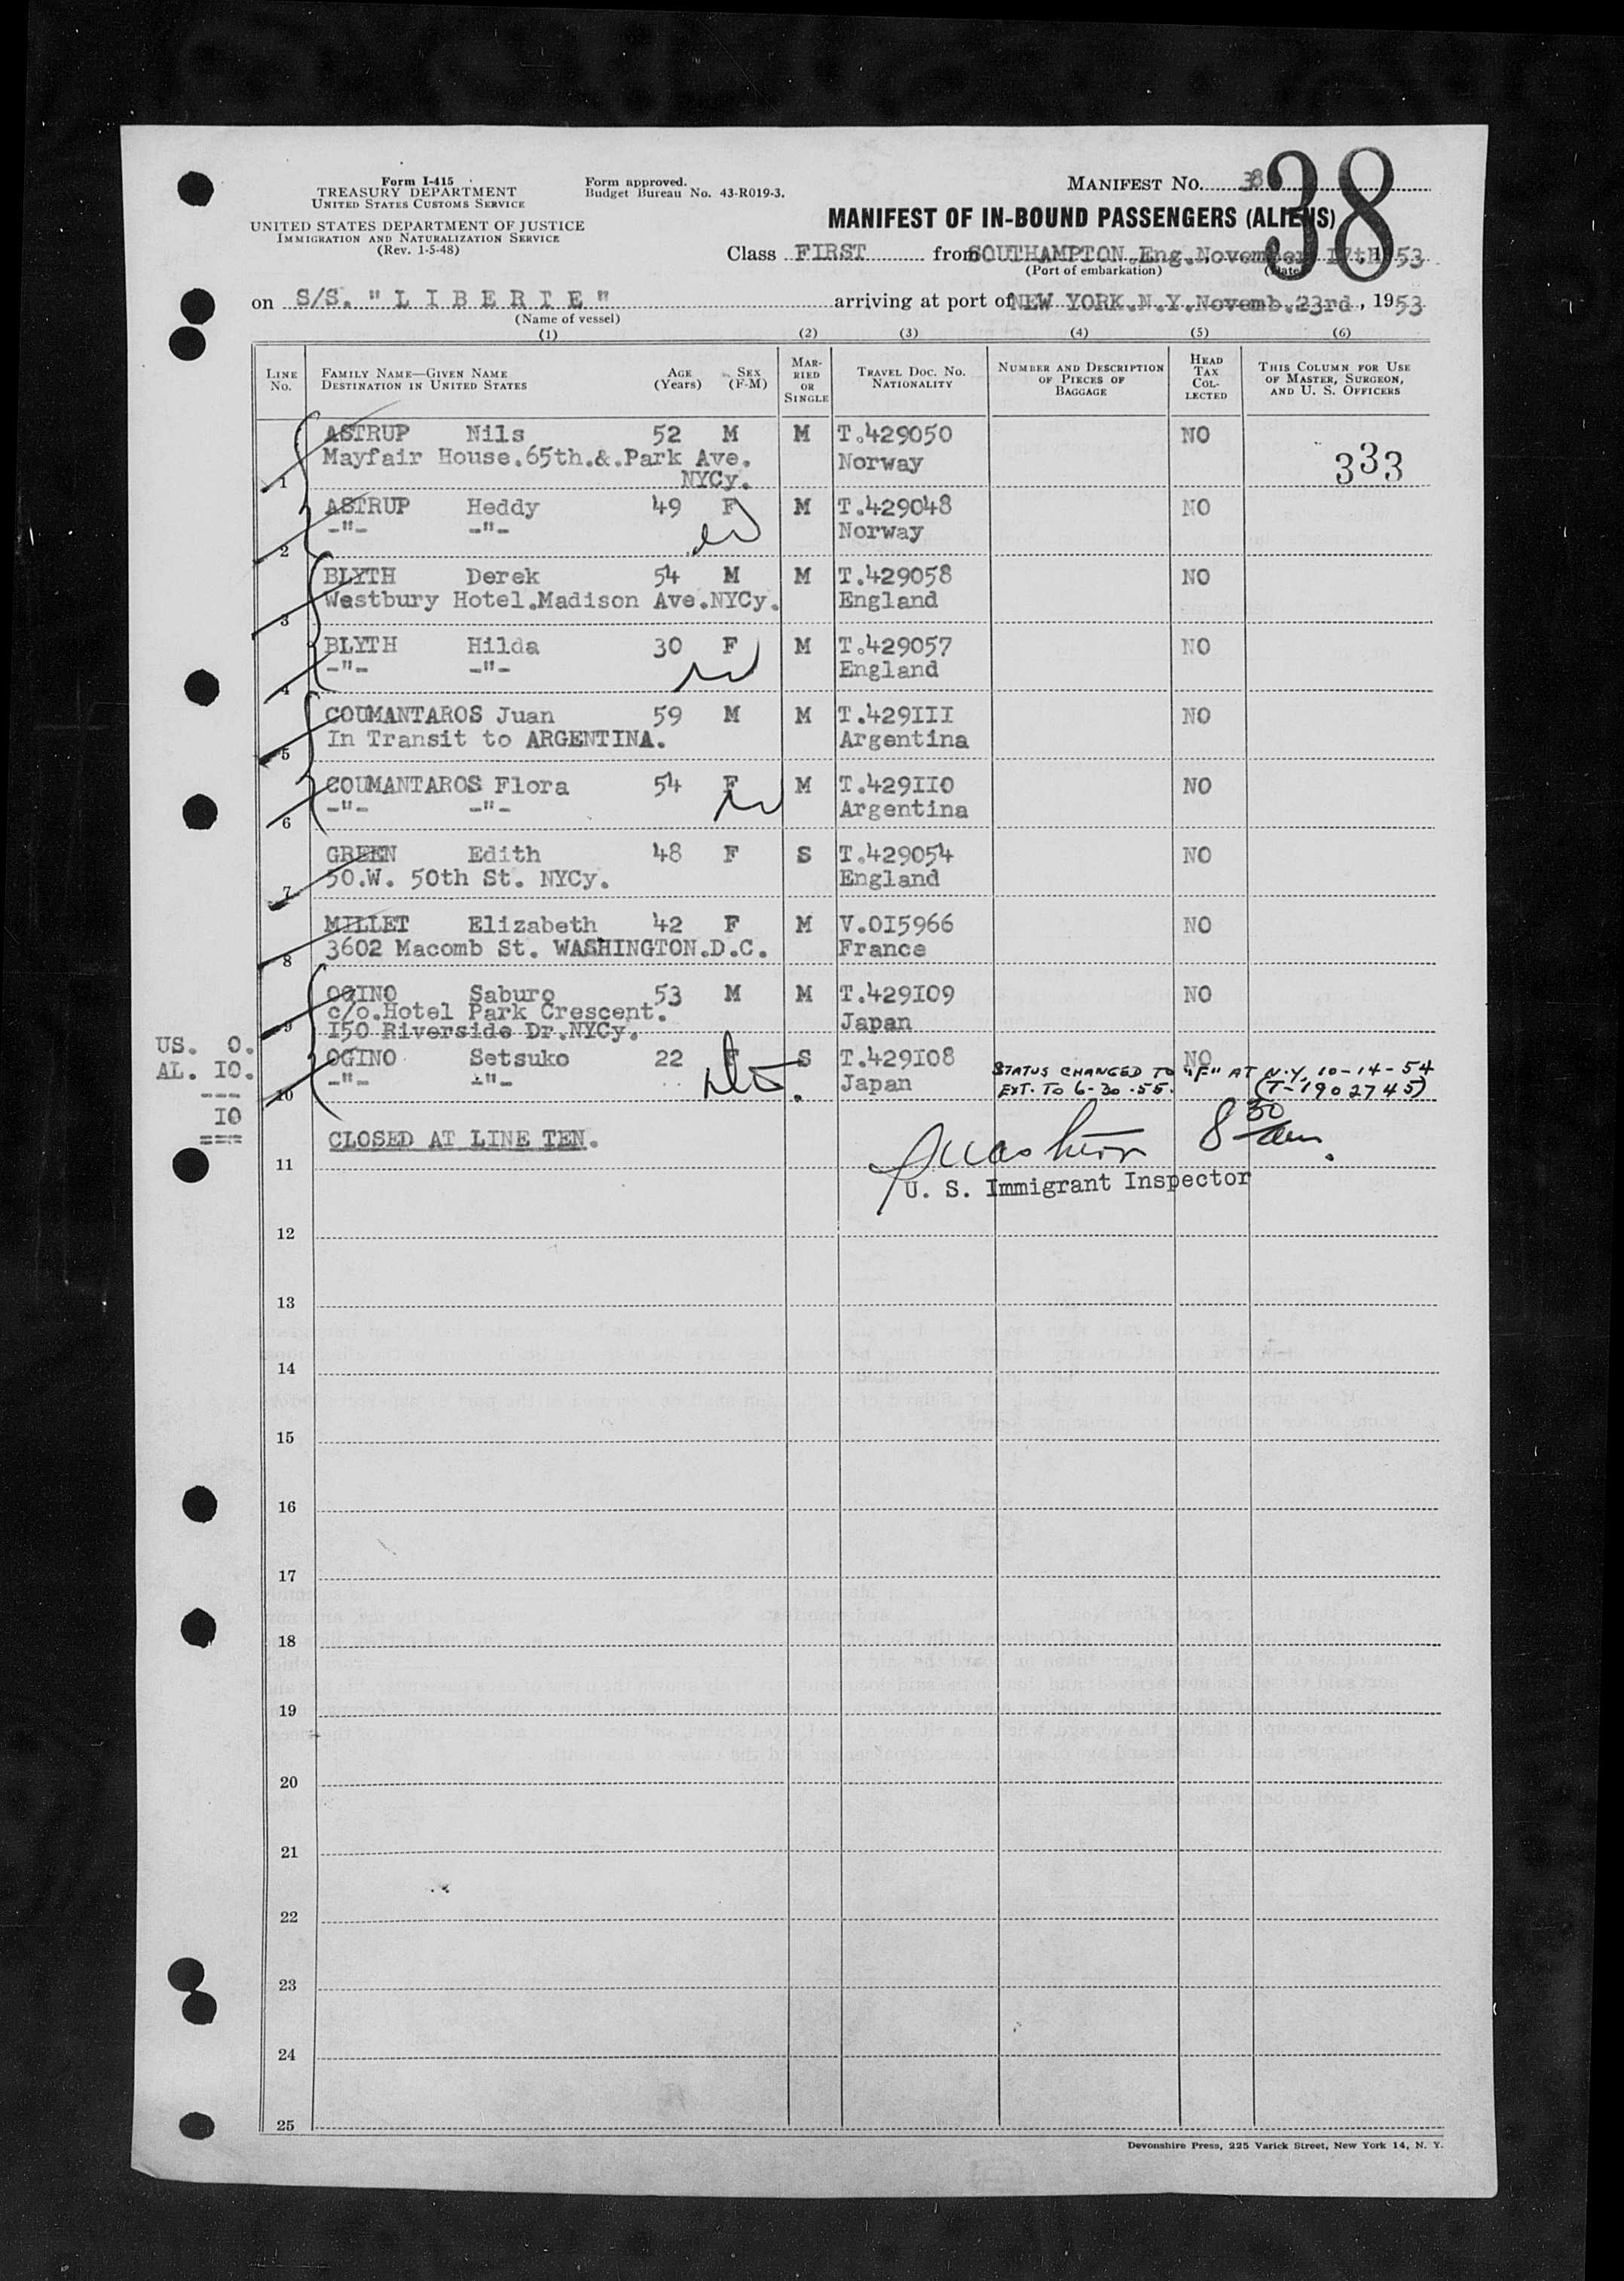 Form I-415
TREASURY DEPARTMENT
UNITED STATES CUSTOMS SERVICE
UNITED STATES DEPARTMENT OF JUSTICE
IMMIGRATION AND NATURALIZATION SERVICE
(Rev. 1-5-48)
Form approved.
Budget Bureau No. 43-R019-3.
MANIFEST NO. 38
38
MANIFEST OF IN-BOUND PASSENGERS (ALIENS)
Class FIRST from SOUTHAMPTON.Eng.November 17th, 1953
(Port of embarkation) (Date)
on S/S. "L I B E R T E" arriving at port of NEW YORK.N.Y.Novemb.23rd, 1953
(Name of vessel)
(1) (2) (3) (4) (5) (6)
LINE NO. FAMILY NAME—GIVEN NAME DESTINATION IN UNITED STATES AGE (Years) SEX (F-M) MARRIED OR SINGLE TRAVEL DOC. NO. NATIONALITY NUMBER AND DESCRIPTION OF PIECES OF BAGGAGE HEAD TAX COLLECTED THIS COLUMN FOR USE OF MASTER, SURGEON, AND U. S. OFFICERS
ASTRUP Nils 52 M M T.429050 NO
Mayfair House.65th.&.Park Ave. Norway 333
1 NYCy.
ASTRUP Heddy 49 F M T.429048 NO
-"- -"- Norway
2
BLYTH Derek 54 M M T.429058 NO
Westbury Hotel.Madison Ave.NYCy. England
3
BLYTH Hilda 30 F M T.429057 NO
-"- -"- England
4
COUMANTAROS Juan 59 M M T.429III NO
In Transit to ARGENTINA. Argentina
5
COUMANTAROS Flora 54 F M T.429II0 NO
-"- -"- Argentina
6
GREEN Edith 48 F S T.429054 NO
50.W. 50th St. NYCy. England
7
MILLET Elizabeth 42 F M V.0I5966 NO
3602 Macomb St. WASHINGTON.D.C. France
8
OGINO Saburo 53 M M T.429I09 NO
c/o.Hotel Park Crescent. Japan
9 I50 Riverside Dr.NYCy.
US. 0.
OGINO Setsuko 22 F S T.429I08 NO
AL. I0.
-"- -"- Japan STATUS CHANGED TO "F" AT N.Y. 10-14-54
EXT. TO 6-30-55. (T-1902745)
10
---
I0
===
CLOSED AT LINE TEN.
8 30 am.
11
U. S. Immigrant Inspector
12
13
14
15
16
17
18
19
20
21
22
23
24
25
Devonshire Press, 225 Varick Street, New York 14, N. Y.